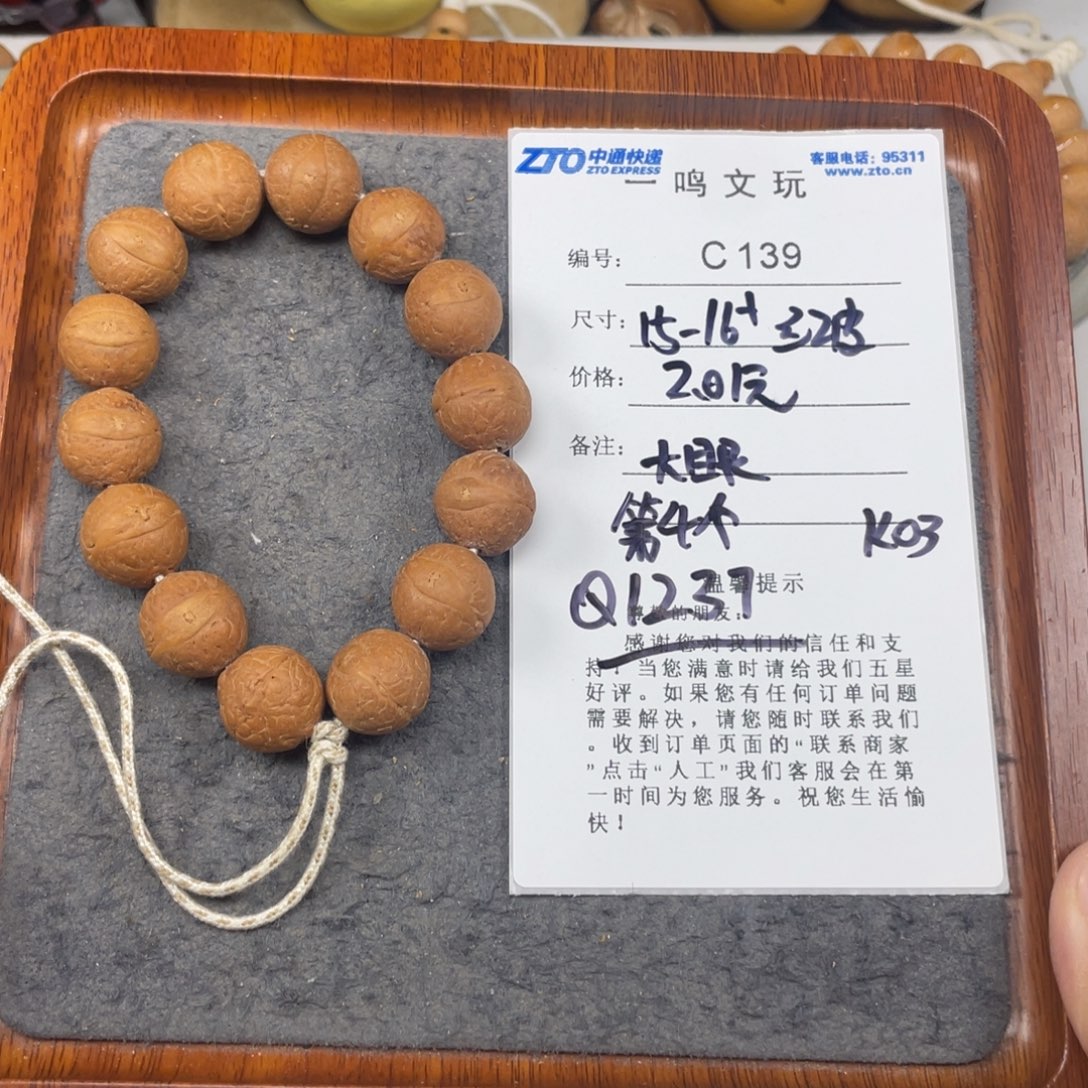 ZTO 中通快递
ZTO EXPRESS
客服电话：95311
www.zto.cn
一鸣文玩
编号： C139
尺寸： 15-16+
价格：
备注： 大目眼
第4个 K03
Q1237
温馨提示
尊敬的朋友：
感谢您对我们的信任和支
持！当您满意时请给我们五星
好评。如果您有任何订单问题
需要解决，请您随时联系我们
。收到订单页面的“联系商家
”点击“人工”我们客服会在第
一时间为您服务。祝您生活愉
快！